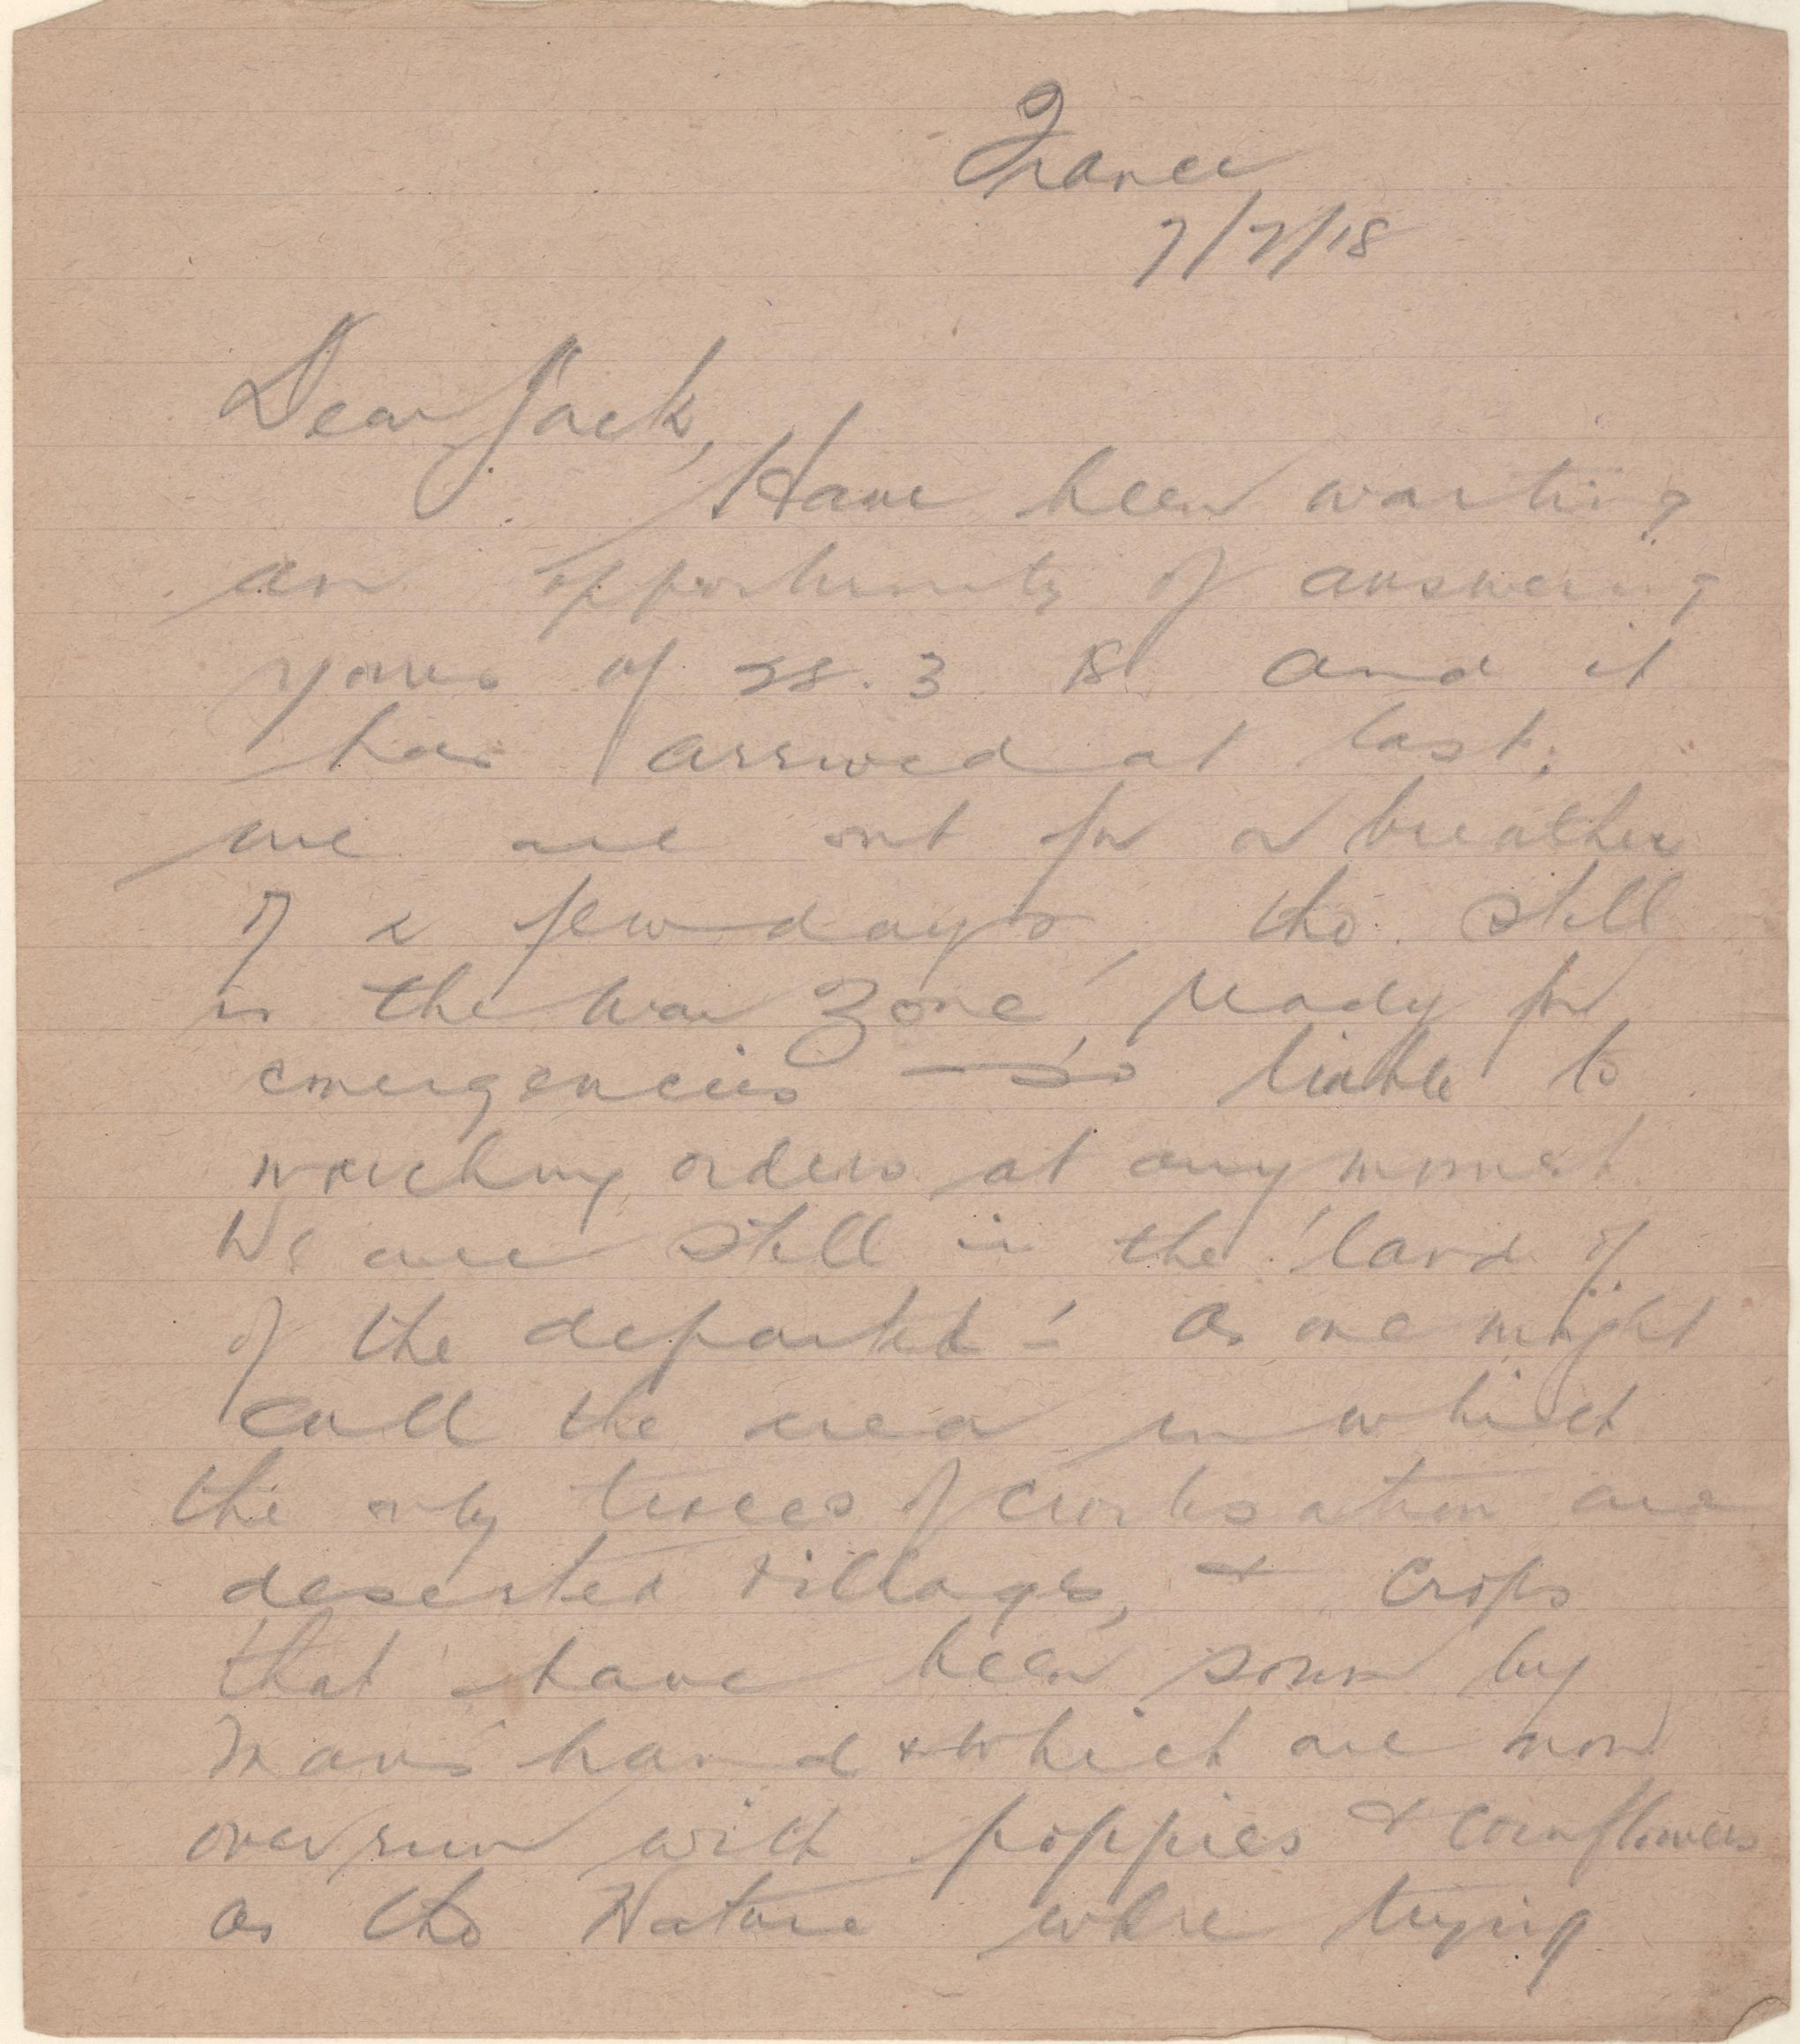 France
7/7/18
Dear Jack,
Have been waiting
an opportunity of answering
yours of 28.3.18 and it
has arrived at last;
we are out for a breather
of a few days, tho still
in the 'War Zone', ready for
emergencies — so liable to
marching orders at any moment.
We are still in the 'land of
of the departed' – as one might
call the area in which
the only traces of civilisation are
deserted villages, & crops
that have been sown by
man's hand & which are now
overrun with poppies & cornflowers
as tho Nature were trying